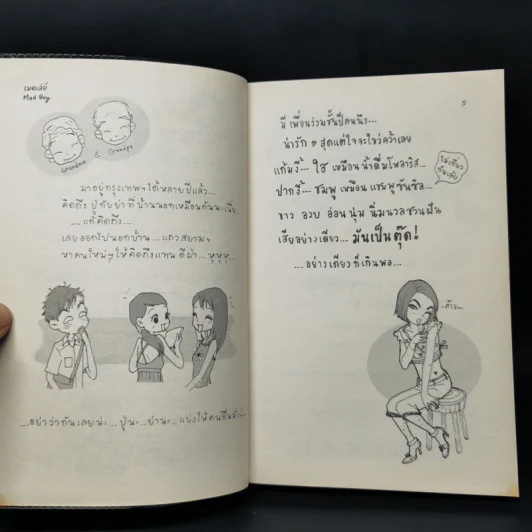 เมดเล่ย์
Mad Boy
Grandma & Grandpa
มาอยู่กรุงเทพฯ ได้หลายปีแล้ว...
คิดถึง ปู่ กับย่า ที่บ้านนอกเหมือนกันนะเนี่ย
....แก้คิดถึง....
เลย ออกไปนอกบ้าน... แถว สยามฯ
หาคนใหม่ๆ ให้คิดถึงแทน ดีฝ่า... หุหุหุ
...อย่าว่ากันเลยน่ะ... ปู่นะ.. ย่านะ..
5
มี เพื่อนร่วมชั้นปีคนนึง...
น่ารัก ๆ สุดแต่ใจจะไขว่คว้าเลย
แก้มงี้... ใส เหมือน น้ำดื่มโพลาริส..
ปากงี้... ชมพู เหมือน แชมพูซันซิล...
ไม่เกี่ยวกันเล้ย
ขาว อวบ อ่อน นุ่ม นิ่มนวลชวนฝัน
เสียอย่างเดียว... มันเป็นตุ๊ด!
...อย่างเดียว ก็ เกินพอ...